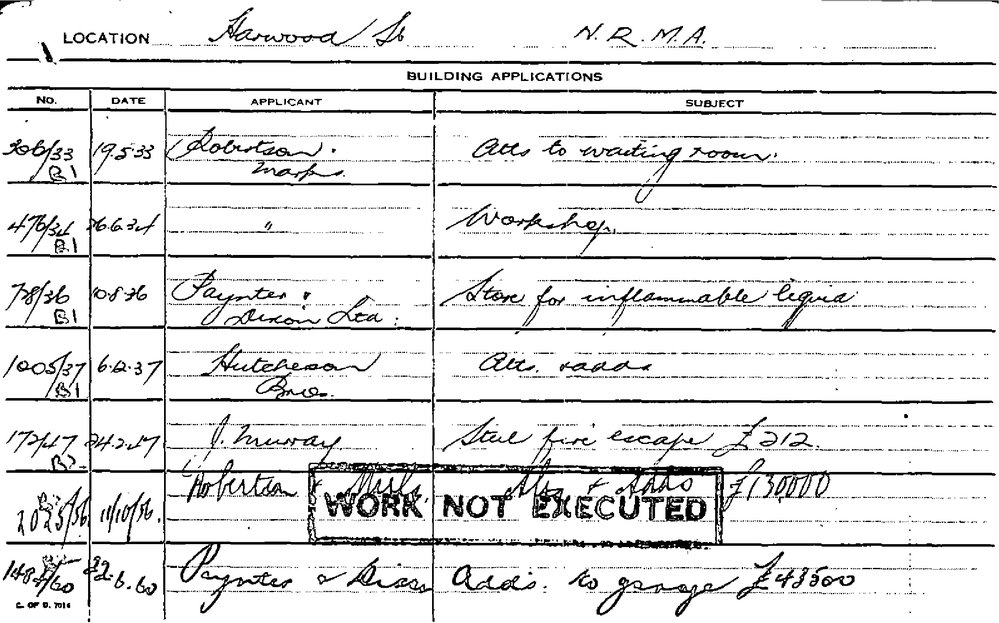 LOCATION Harwood St N.R.M.A.
BUILDING APPLICATIONS
NO. DATE APPLICANT SUBJECT
306/33 19.5.33 Robertson. Alts to waiting room.
B1 Marks.
476/34 26.6.34 " Workshop.
B1
78/36 10.8.36 Paynter & Store for inflammable liquid
B1 Dixon Ltd.
1005/37 6.2.37 Hutcheson Alts. & adds
B1 Bros.
172/47 24.2.47 J. Murray Steel fire escape £212.
Robertson & Marks. Alts & Adds £130000
11/10/56. WORK NOT EXECUTED
.6.60 Paynter & Dixon Adds. to garage £43500
C. OF S. 7014